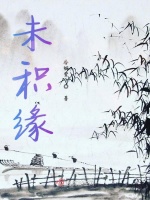 未积缘
著